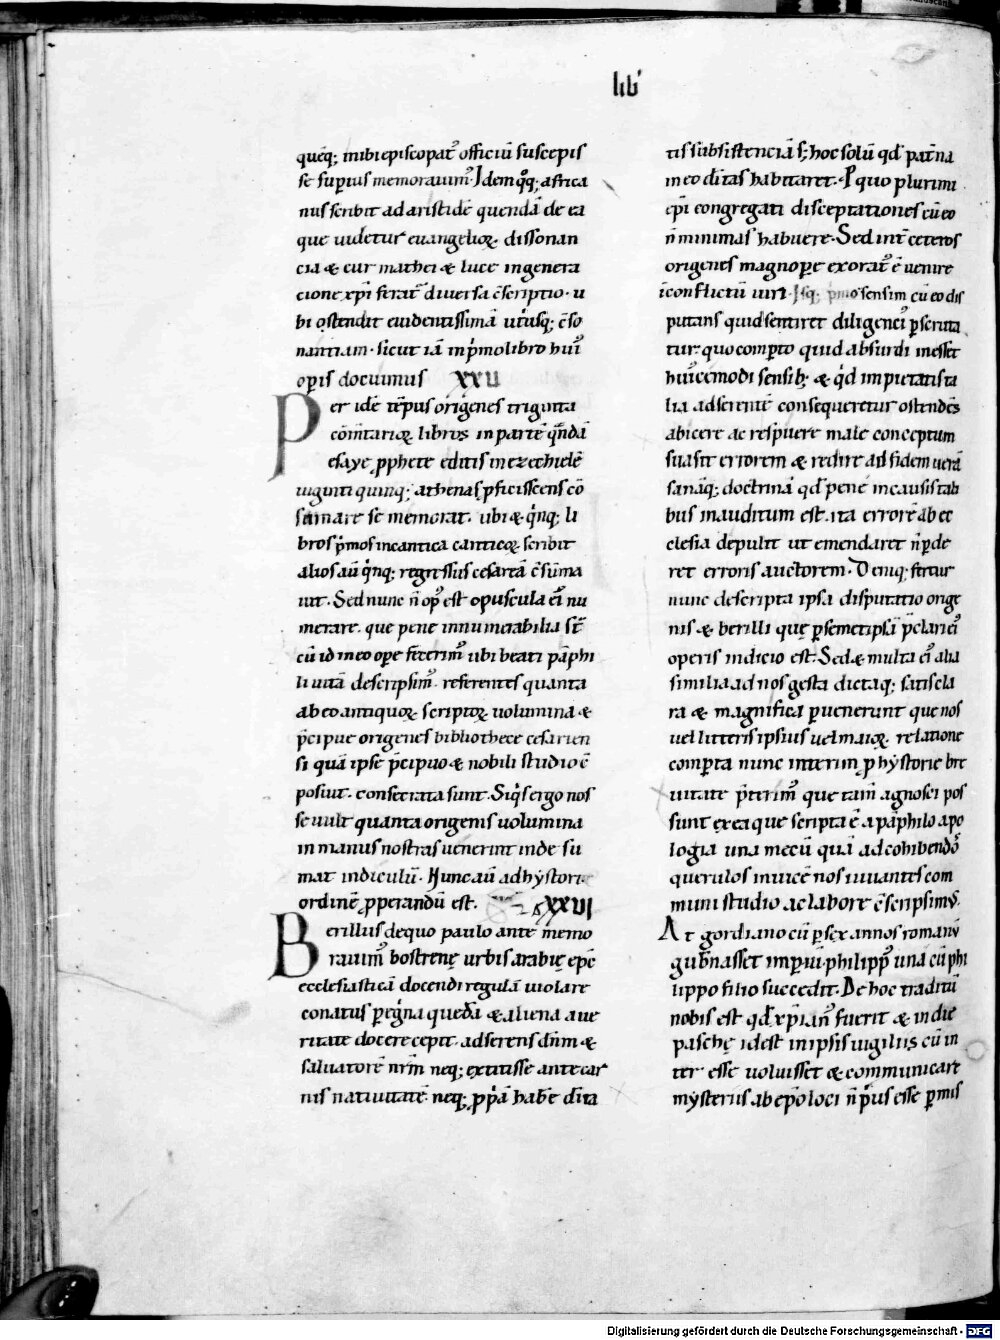 lib'
quęq; inibi episcopat᷒ officiū suscepis
se sup̄ius memorauim᷒. Idem q̊q; africa
nus scribit ad aristidē quendā de ea
que uidetur euangelioꝝ dissonan
cia & cur mathei & luce in genera
cione xp̄i ferat᷒ diuersa c̄scriptio. u
bi ostendit euidentissimā utrusq; c̄so
nantiam. sicut iā in p̍mo libro hui᷒
op̄is docuimus XXU
Per idē tēpus origenes triginta
cōm̄tarioꝝ libros in partē q̄ndā
esaye ꝓphete editis in ezechielē
uiginti quinq; athenas ꝓficiscens cō
sūmare se memorat. ubi & q̍nq; li
bros p̍mos in cantica canticoꝝ scribit
alios aū q̍nq; regressus cesareā c̄sūma
uit. Sed nunc ñ op᷒ est opuscula ei᷒ nu
merare. que pene innumerabilia st̄
cū id in eo ope fecerim᷒ ubi beati pāphi
li uitā descripsim᷒. referentes quanta
ab eo antiquoꝝ scriptoꝝ uolumina &
p̄cipue origenes bibliothece cesarien
si quā ipse p̄cipuo & nobili studio c̄
posiut. consecrata sunt. Siq̍s ergo nos
se uult quanta origenis uolumina
in manus nostras uenerint inde su
mat indiculū. Nunc aū ad hẏstorię
ordinē ꝓperandū est. XXUI
Berillus de quo paulo ante memo
rauim᷒ bostrenę urbis arabię ep̄c
ecclesiasticā docendi regulā uiolare
conatus ꝑegrina quedā & aliena a ue
ritate docere cepit. adserens dn̄m &
saluatorē nr̄m neq; extitisse ante car
nis natiuitatē neq; ꝓpͥā habē diuīta
tis subsistenciā s; hoc solū qd̄ pat̄na
in eo diuitas habitaret. P quo plurimi
ep̄i congregati disceptationes cū eo
ñ minimas habuere. Sed int̄ ceteros
origenes magnopere exorat᷒ ē uenire
ī conflictū uiri. Isq; p̍mo sensim cū eo dis
putans quid sentiret diligenci᷒ ꝑscruta
tur. quo comp̄to quid absurdi inesset
hui᷒cemodi sensib; & q̍d impietatis ta
lia adserentē consequeretur ostendēs
abicere ac respuere male conceptum
suasit errorem & redire ad fidem uerā
sanāq; doctrinā. qd̄ pene in causis tali
bus inauditum est. ita errorē ab ec
clesia depulit ut emendaret ñ ꝑde
ret erroris auctorem. Deniq; fertur
nunc descripta ipsa disputatio orige
nis & berilli quę ꝑ semetipsā p̄clari ei᷒
operis indicio est. Sed & multa ei᷒ alia
similia ad nos gesta dictaq; satis cla
ra & magnifica puenerunt que nos
uel litteris ipsius uel maioꝝ relatione
comp̄ta nunc interim ꝓ hẏstorie bre
uitate p̄terim᷒ que tam̄ agnosci pos
sunt ex ea que scripta ē a pāphilo apo
logia una mecū quā ad cohibendos
querulos inuicē nos iuuantes com
muni studio ac labore c̄scripsim᷒.
At gordiano cū ꝑ sex annos romanū
gub̄nasset imp̄iū. philipp᷒ una cū phi
lippo filio succedit. De hoc traditū
nobis est qd̄ xp̄ian᷒ fuerit & in die
paschę idest in ipsis uigiliis cū in
ter esse uoluisset & communicare
mẏsteriis ab ep̄o loci ñ p̍us esse ꝑmis
Digitalisierung gefördert durch die Deutsche Forschungsgemeinschaft - DFG